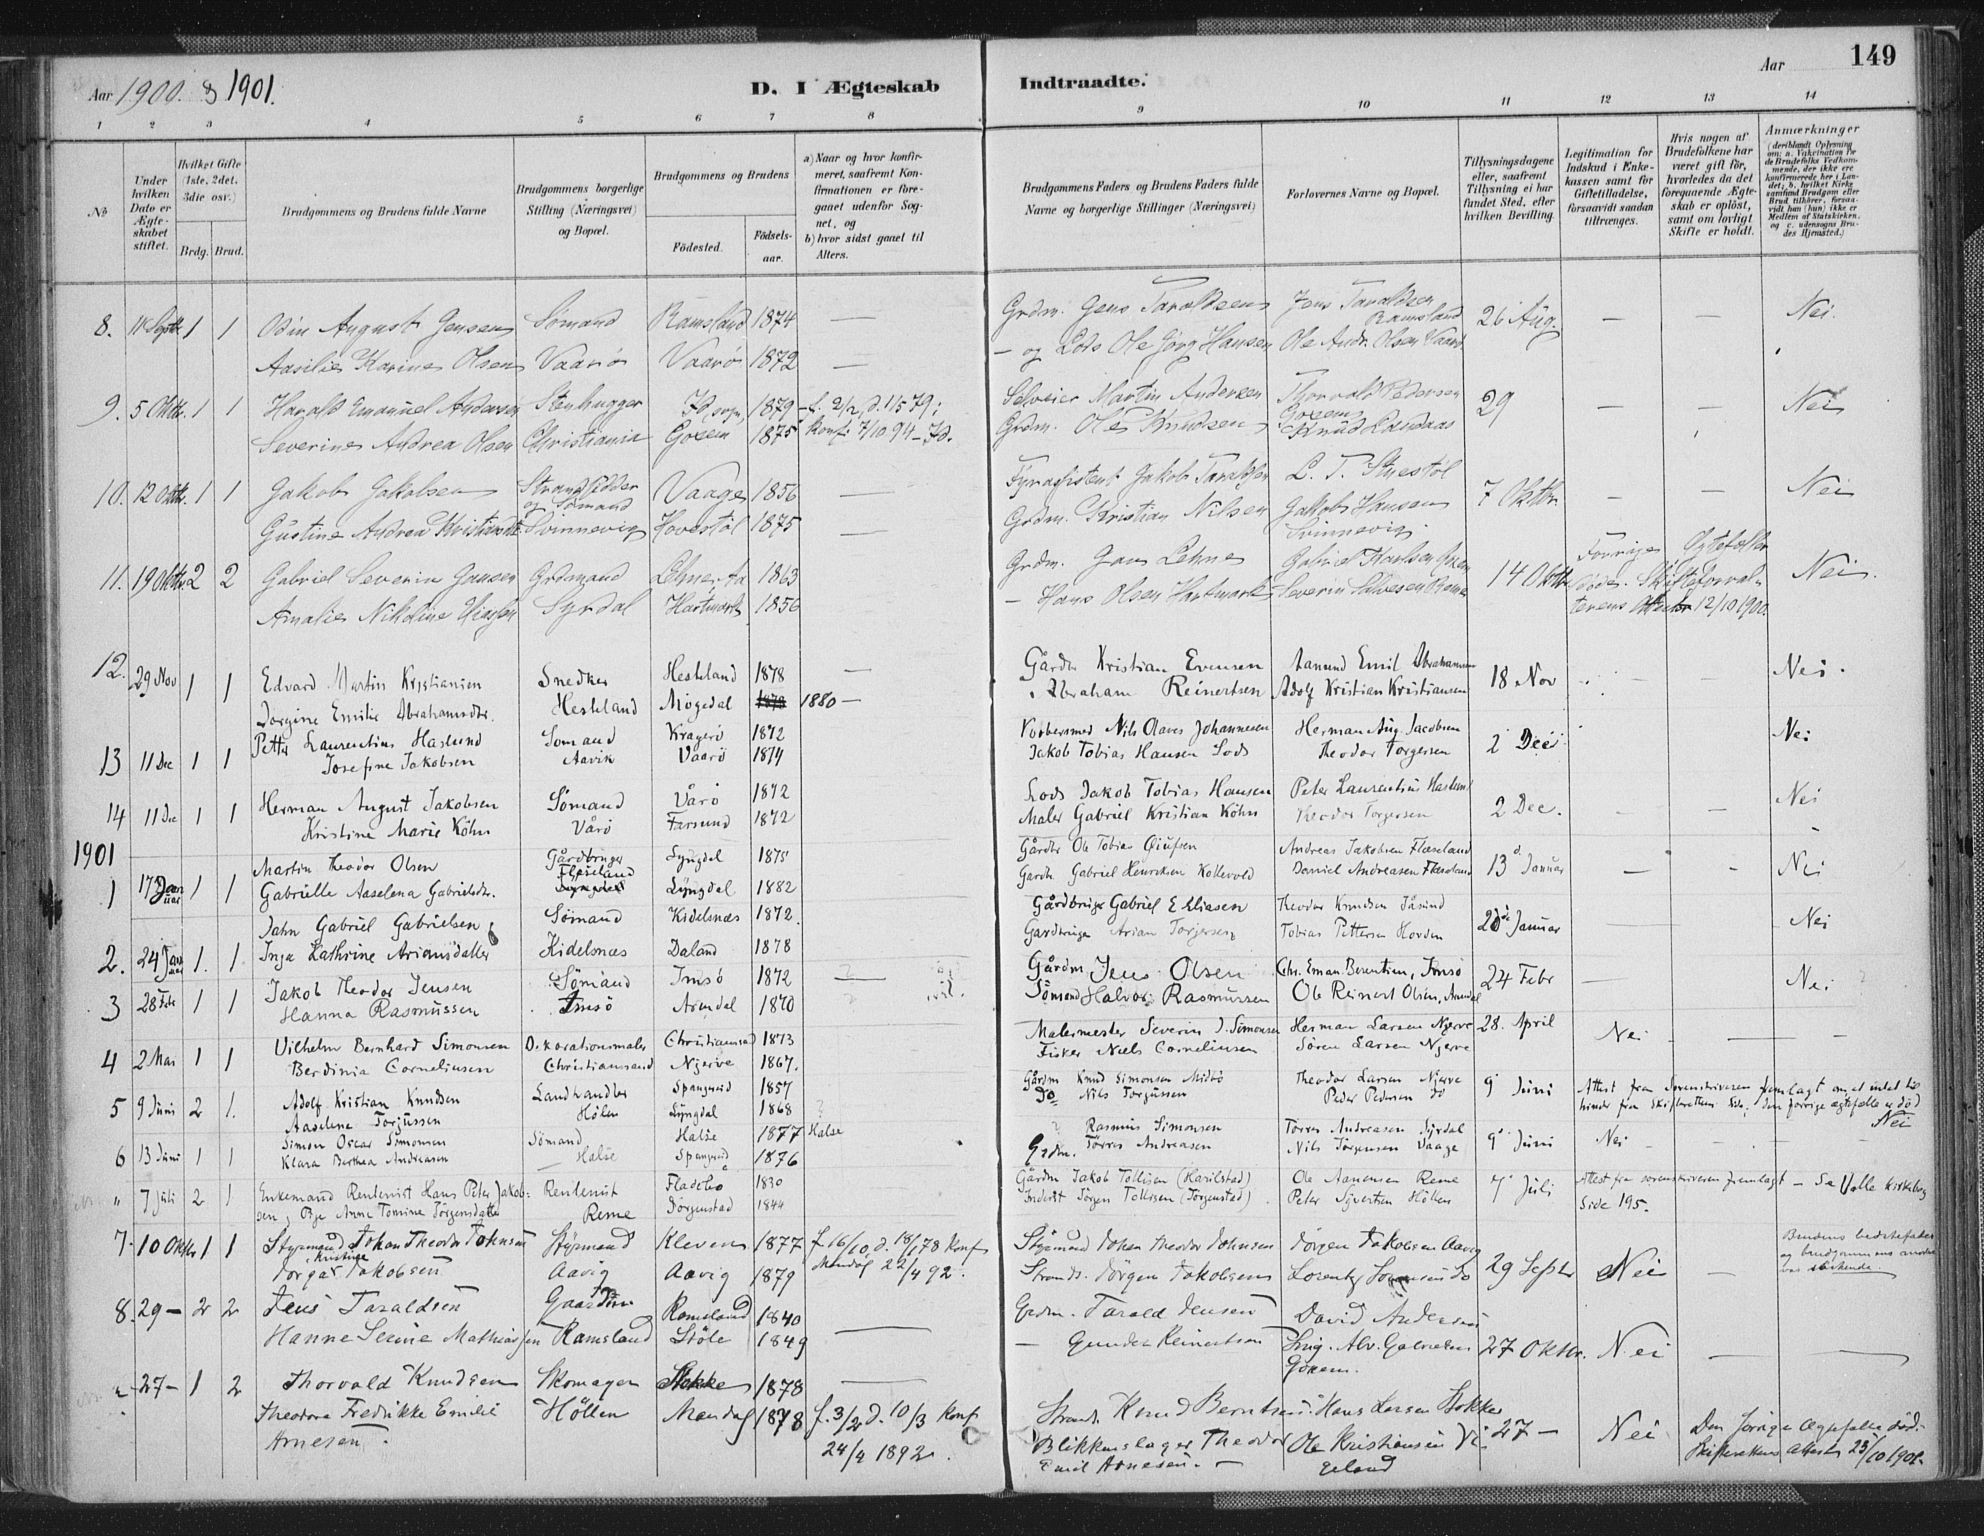 Aar 1900. & 1901.
D. I Ægteskab Indtraadte.
Aar
149
1 2 3 4 5 6 7 8 9 10 11 12 13 14
No
Under hvilken Dato er Ægteskabet stiftet.
Hvilket Gifte (1ste, 2det, 3die osv.)
Brdg. Brud.
Brudgommens og Brudens fulde Navne
Brudgommens borgerlige Stilling (Næringsvei) og Bopæl.
Brudgommens og Brudens
Fødested.
Fødselsaar.
a) Naar og hvor konfirmeret, saafremt Konfirmationen er foregaaet udenfor Sognet, og
b) hvor sidst gaaet til Alters.
Brudgommens Faders og Brudens Faders fulde Navne og borgerlige Stillinger (Næringsvei)
Forlovernes Navne og Bopæl.
Tillysningsdagene eller, saafremt Tillysning ei har fundet Sted, efter hvilken Bevilling.
Legitimation for Indskud i Enkekassen samt for Giftetilladelse, forsaavidt saadan tiltrænges.
Hvis nogen af Brudefolkene har været gift før, hvorledes da det foregaaende Ægteskab er opløst, samt om lovligt Skifte er holdt.
Anmærkninger (deriblandt Oplysning om: a. Vakcination for de Brudefolks Vedkommende, der ikke ere konfirmerede her i Landet; b. hvilket Kirkesamfund Brudgom eller Brud tilhører, forsaavidt han (hun) ikke er Medlem af Statskirken, og c. udensogns Brudes Hjemsted.)
8. 11 Septb. 1 1 Odin August Jensen Sømand Ramsland 1874 — Grdm. Jens Taraldsen Jens Taraldsen Ramsland 26 Aug. — — Nei.
Aasilie Karine Olsen Vaarø Vaarø 1872 — — og Lods Ole Jørg Hansen Ole Andr. Olsen Vaarø
9. 5 Oktbr. 1 1 Harald Emanuel Andersen Stenhugger Id sogn, 1879 — f. 2/2, d. 1/5 79; Selveier Martin Andersen Thorvald Pedersen Goxem 29 — — Nei
Severine Andrea Olsen Christiania Goxem 1875 Konf. 7/10 94 — Id. Grdm. Ole Knudsen Knud Landaas
10. 12 Oktbr. 1 1 Jakob Jakobsen Strandsidder og Sømand Vaage 1856 — Fyrassistent Jakob Taraldsen L. T. Stuestøl 7 Oktbr. — — Nei
Gustine Andrea Kristiansdtr. Svinnevig Hovestøl 1875 — Grdm. Kristian Nilsen Jakob Hansen Svinnevig.
11. 19 Oktbr. 2 2 Gabriel Severin Jansen Grdmand Lehne 1863 Grdm. Jans Lehne Gabriel Karlsen 14 Oktbr. Forrige Ægtefæller døde. Skifteforvalterens Attester 12/10 1900. Nei.
Amalie Nikoline Syrdal Hartmark 1856 — Hans Olsen Hartmark Severin
12. 29 Nov 1 1 Edvard Martin Kristiansen Snedker Heshland 1878 — Gårdbr Kristian Evensen Aanund Emil Abrahamsen 18 Nov Nei.
Jorgine Emilie Abrahamsdtr. Heshland Møgedal 1878 1880 — " Abraham Reinertsen Adolf Kristian Kristiansen
13 11 Dec 1 1 Petter Laurentius Haslund Sømand Kragerø 1872 Kobbersmed Nils Olaves Johannesen Herman Aug. Jacobsen 2 Dec Nei
Josefine Jakobsen Aavik Vaarø 1874 Jakob Tobias Hansen Lods Theodor Torgersen
14 11 Dec 1 1 Herman August Jakobsen Sømand Vårø 1872 Lods Jakob Tobias Hansen Peter Laurentius Haslund 2 Dec. — — Nei
Kristine Marie Köhn Vårø Farsund 1872 Maler Gabriel Kristian Köhn Theodor Torgersen
1901
1 17 Januar 1 1 Martin Theodor Olsen Gårdbruger Flæseland Lyngdal 1875 Gårdbr Ole Tobias Andreas Jakobsen Flæseland 13 Januar — — Nei
Gabrielle Aaselena Gabrielsdtr. Lyngdal 1882 Gardb. Gabriel Henriksen Kollevold Daniel Andreasen Flæseland
2. 24 Januar 1. 1 Jahn Gabriel Gabrielsen Sømand Kidelsnæs 1872. Gårdbruger Gabriel Elliasen Theodor Knudsen Jåsund 20 Januar — — Nei
Inga Kathrine Ariansdatter Kidelsnæs Daland 1878 Gardbruger Arian Torjersen Tobias Pettersen Horden
3 28 Feb 1 1 Jakob Theodor Jensen Sømand Imsø 1872 Gårdm Jens Olsen Chr. Eman. Berentsen, Imsø 24 Febr — Nei
Hanna Rasmussen Imsø Arendal 1870 Sømand Halvor Rasmussen Ole Reinert Olsen, Arendal
4 2 Mai 1 1 Vilhelm Bernhard Simonsen Dekorationsmaler Christiansand 1873 Malermester Severin J. Simonsen Herman Larsen Njerve 28. April Nei — — —
Berdinia Corneliusen Christiansand Njerve 1867. Fisker Niels Corneliusen Søren Larsen Njerve
5 9 Juni 2 1. Adolf Kristian Knudsen Landhandler Spangereid 1857 Gårdm Knud Simonsen Midbø Theodor Larsen Njerve 9 Juni Attest fra Sorenskriveren fremlagt om at intet til hinder fra skifterettens Side. Den forrige ægtefælle er død
Aaselene Torjussen Hølen Lyngdal 1868 Do. Nils Torjussen Peder Pedersen Do Nei
6 13 Juni 1 1 Simon Oscar Simonsen Sømand Halse 1877 Halse Rasmus Simonsen Torres Andreasen Syrdal 9 Juni Nei — — —
Klara Berthea Andreasen — Halse Spangereid 1876 Grdm. Torres Andreasen Nils Jørgensen Vaage
" 7 Juli 2 1 Enkemand Rentenist Hans Peter Jakobsen, Pige Anne Tomine Jörgensdatter Rentenist Reme Fladebo 1830 Gårdm Jakob Tollisen (Harilstad) Ole Aanensen Reme 7 Juli Attest fra sorenskriveren fremlagt — Se Valle kirkebog Side 195.
Jörgenstad 1844 Inderst Jörgen Tollisen (Jörgenstad) Peter Syvertsen Höllen
7. 10 Oktbr 1 1 Styrmand Johan Theodor Johnsen Styrmand Kleven 1877 f. 16/10, d. 18/1 78 Konf Mandal 22/4 92. Styrmand Johan Theodor Johnsen Jörgen Jakobsen Aavig 29 Septr Nei — Brudens bedstefader og brudgommens
Kristine Jakobsen Aavig Aavig 1879 Strands. Jörgen Jakobsen Lorentz Do
8. 29 — 2 2 Jens Taraldsen Gaardm Ramsland 1840 Grdm. Tarald Jensen David Andersen
Hanne Serine Mathiassen Ramsland Støle 1849 — — Gunder Reinertsen Alv. Gabrielsen Goxem. 27 Oktbr. Nei — —
27 — 1 2 Thorvald Knudsen Skomager Stokke 1878 — Strands. Knud Berntsen Hans Larsen Stokke 27 — Nei Den forrige Ægtefælle död. Skifterettens Attest 23/10 1901.
Theodora Fredrikke Emilie Arnesen. Höllen Mandal 1878 f. 3/2 d. 10/3 Konf 24/4 1892. Blikkenslager Theodor Emil Arnesen. — Ole Kristiansen